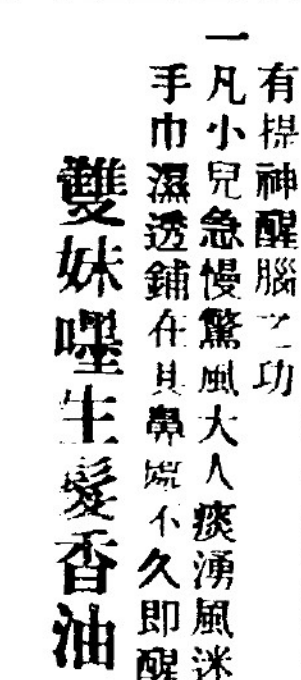 有提神醒腦之功
一凡小兒急慢驚風大人痰湧風迷
手巾濕透鋪在其鼻處不久即醒
雙妹嘜生髮香油